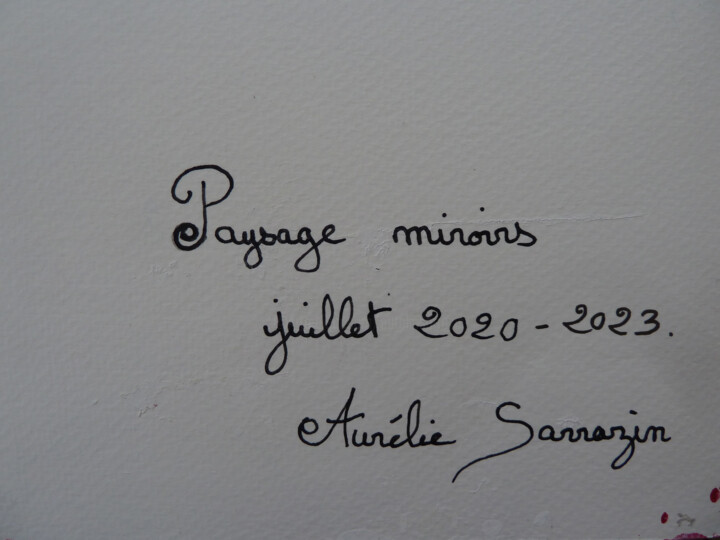 Paysage miroirs
juillet 2020-2023.
Aurélie Sarrazin